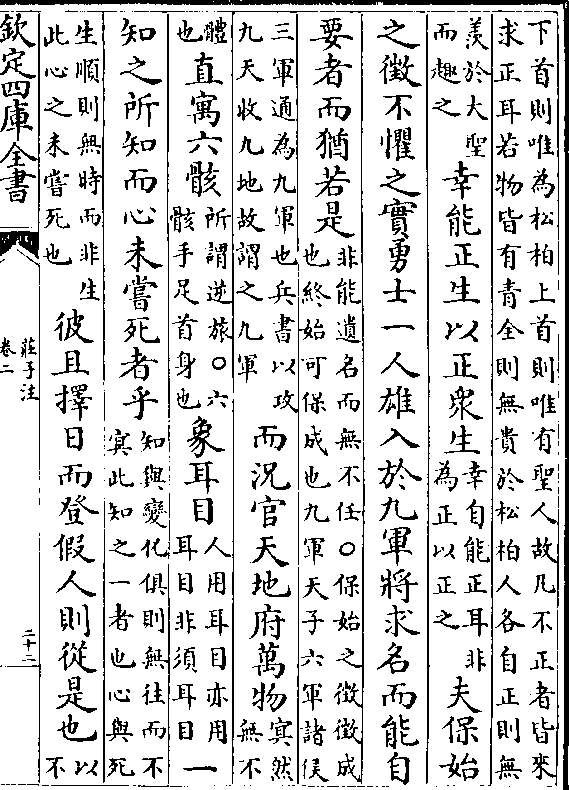 下首則唯為松柏上首則唯有聖人故凡不正者皆來
求正耳若物皆有青全則無貴於松柏人各自正則無
羨於大聖
而趣之
幸能正生以正衆生
幸自能正耳非
為正以正之
夫保始
之徴不懼之實勇士一人雄入於九軍將求名而能自
要者而猶若是
非能遺名而無不任○保始之徴徴成
也終始可保成也九軍天子六軍諸侯
三軍通為九軍也兵書以攻
九天收九地故謂之九軍
而況官天地府萬物
㝠然
無不
體
也
直寓六骸
所謂逆旅○六
骸手足首身也
象耳目
人用耳目亦用
耳目非須耳目
一
知之所知而心未嘗死者乎
知與變化俱則無往而不
㝠此知之一者也心與死
生順則無時而非生
此心之未嘗死也
彼且擇日而登假人則從是也
以
不
欽定四庫全書
莊子注
卷二
二十二